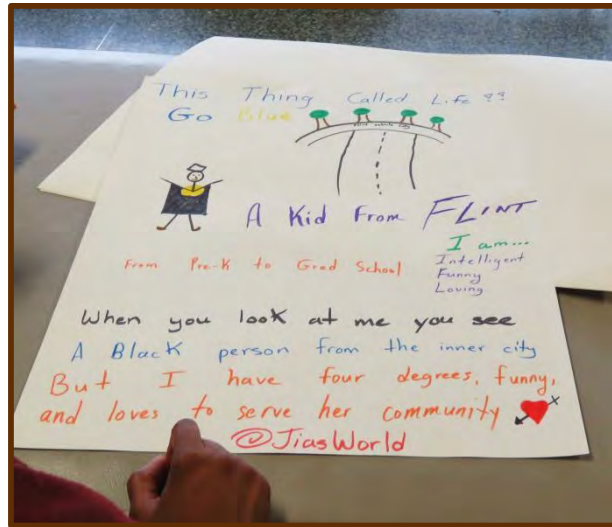 This Thing Called Life ??
Go Blue
A Kid From FLINT
I am...
Intelligent
From Pre-K to Grad School
Funny
Loving
When you look at me you see
A Black person from the inner city
But I have four degrees, funny,
and loves to serve her community
@JiasWorld